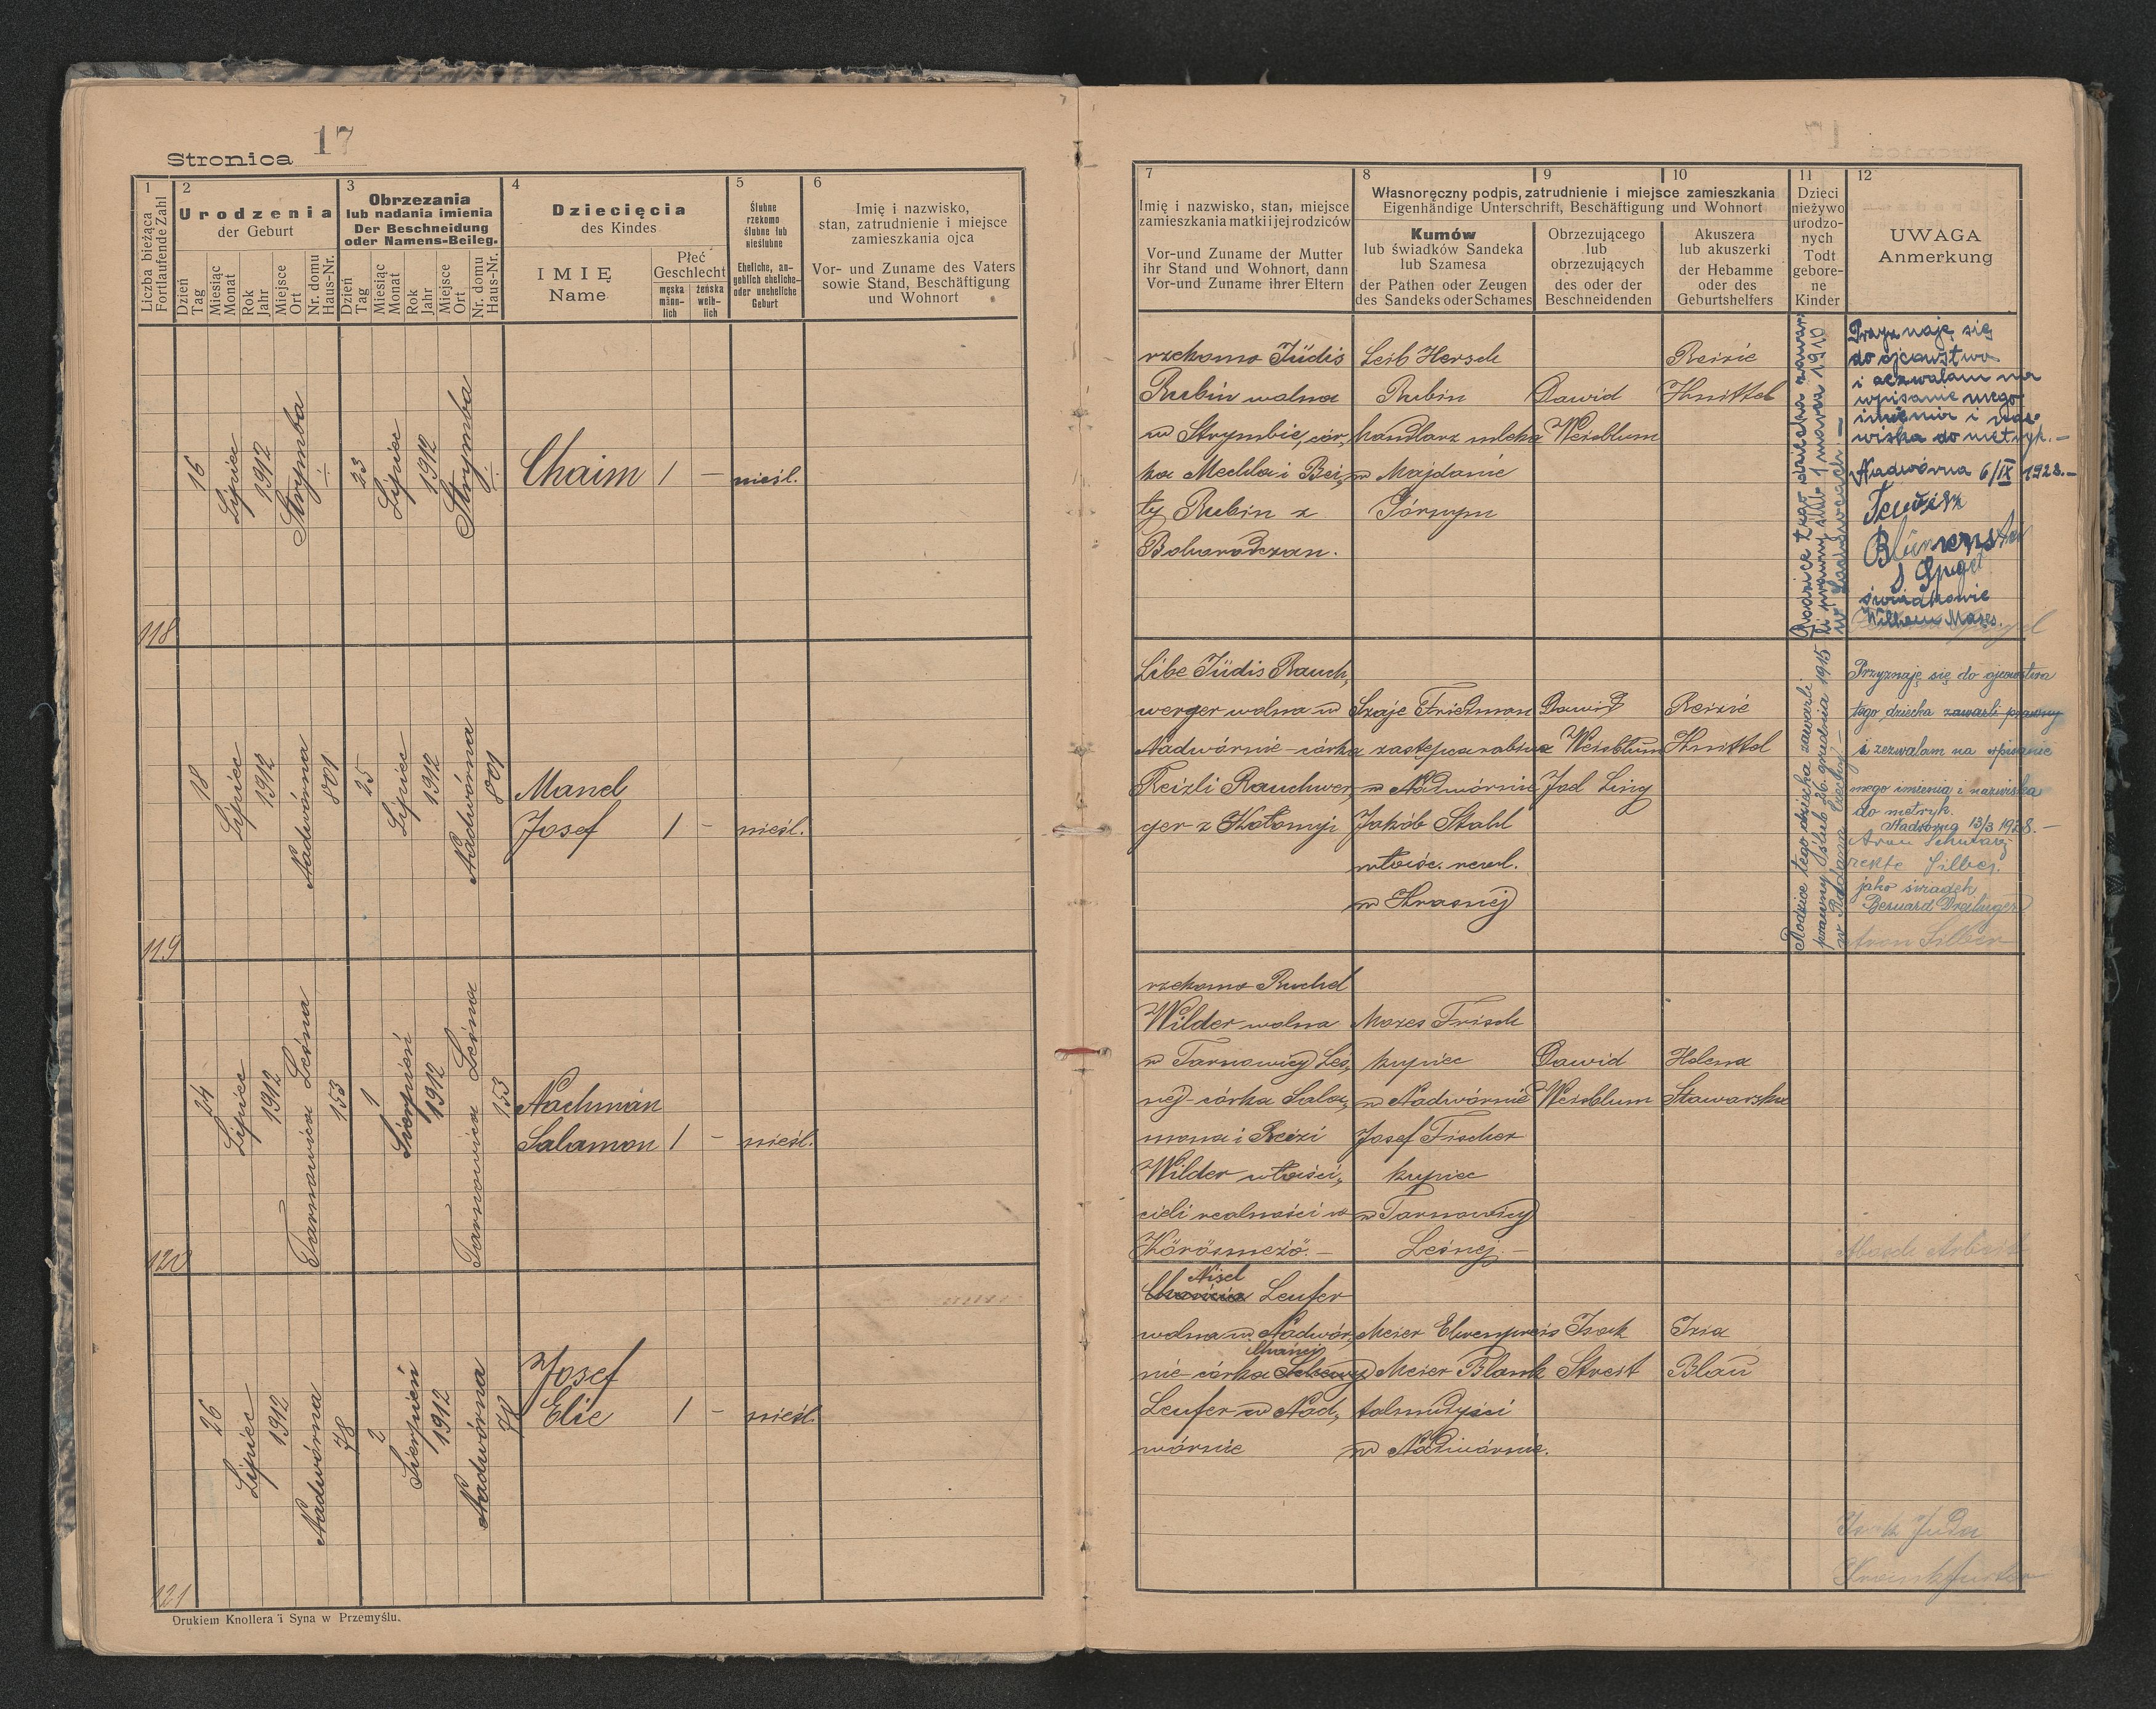 Stronica 17
1
Liczba bieżąca
Fortlaufende Zahl
2
Urodzenia
der Geburt
Dzień
Tag
Miesiąc
Monat
Rok
Jahr
Miejsce
Ort
Nr. domu
Haus-Nr.
3
Obrzezania
lub nadania imienia
Der Beschneidung
oder Namens-Beileg.
Dzień
Tag
Miesiąc
Monat
Rok
Jahr
Miejsce
Ort
Nr. domu
Haus-Nr.
4
Dziecięcia
des Kindes
IMIĘ
Name
Płeć
Geschlecht
męska
männ-
lich
żeńska
weib-
lich
5
Ślubne
rzekomo
ślubne lub
nieślubne
Eheliche, an-
geblich eheliche-
oder uneheliche
Geburt
6
Imię i nazwisko,
stan, zatrudnienie i miejsce
zamieszkania ojca
Vor- und Zuname des Vaters
sowie Stand, Beschäftigung
und Wohnort
118
16
Lipiec
1912
Strymba
÷
23
Lipiec
1912
Strymba
÷
Chaim 1 — nieśl.
119
18
Lipiec
1912
Nadwórna
801
25
Lipiec
1912
Nadwórna
801
Manel
Josef 1 – nieśl.
120
24
Lipiec
1912
Tarnowica Leśna
153
1
Sierpień
1912
Tarnowica Leśna
153
Nachman
Salamon 1 – nieśl.
121
26
Lipiec
1912
Nadwórna
78
2
Sierpień
1912
Nadwórna
78
Josef
Elie 1 – nieśl.
Drukiem Knollera i Syna w Przemyślu.
7
Imię i nazwisko, stan, miejsce
zamieszkania matki i jej rodziców
Vor-und Zuname der Mutter
ihr Stand und Wohnort, dann
Vor-und Zuname ihrer Eltern
8
9
10
Własnoręczny podpis, zatrudnienie i miejsce zamieszkania
Eigenhändige Unterschrift, Beschäftigung und Wohnort
Kumów
lub świadków Sandeka
lub Szamesa
der Pathen oder Zeugen
des Sandeks oder Schames
Obrzezującego
lub
obrzezujących
des oder der
Beschneidenden
Akuszera
lub akuszerki
der Hebamme
oder des
Geburtshelfers
11
Dzieci
nieżywo
urodzo-
nych
Todt
gebore-
ne
Kinder
12
UWAGA
Anmerkung
rzekomo Jüdis
Rubin wolna
w Strymbie, cór,
ka Mechla i Bei,
ty Rubin z
Bohorodczan.
Leib Hersch
Rubin
handlarz mleka
w Majdanie
Górnym
Dawid
Weisblum
Reizie
Knittel
Rodzice tego dziecka zawar,
li prawny ślub 1 marca 1910
Przyznaję się
do ojcowstwa
i zezwalam na
wpisanie mego
imienia i naz-
wiska do metryk.—
Nadwórna 6/IX 1928.—
świadkowie
Libe Jüdis Rauch,
werger wolna w
Nadwórnie córka
Reizli Rauchwer,
ger z Kołomyi
Szaje Friedman
zastępca rabina
w Nadwórnie
Jakób Stahl
właśc. real.
w Krasnej
Dawid
Weisblum
Joel Ling
Reizie
Knittel
Rodzice tego dziecka zawarli
prawny ślub 26. grudnia 1915
Przyznaję się do ojcowstwa
tego dziecka zawarli prawny
i zezwalam na wpisanie
mego imienia i nazwiska
do metryk.
Nadwórna 13/3 1928.—
rekte Silber.
jako świadek
Aron Silber
rzekomo Ruchel
Wilder wolna
w Tarnowicy Leś,
nej córka Sala,
mona i Reizi
Wilder właści,
cieli realności w
Körösmező.—
Mozes Frisch
kupiec
w Nadwórnie
Josef Fischer
kupiec
w Tarnowicy
Leśnej.—
Dawid
Weisblum
Helena
Stawarska
Nisel
Leufer
wolna w Nadwór,
nie córka
Leufer w Nad,
wórnie
Meier Ehrenpreis
Meier Blank
talmudyści
w Nadwórnie.
Isak
Streit
Blau